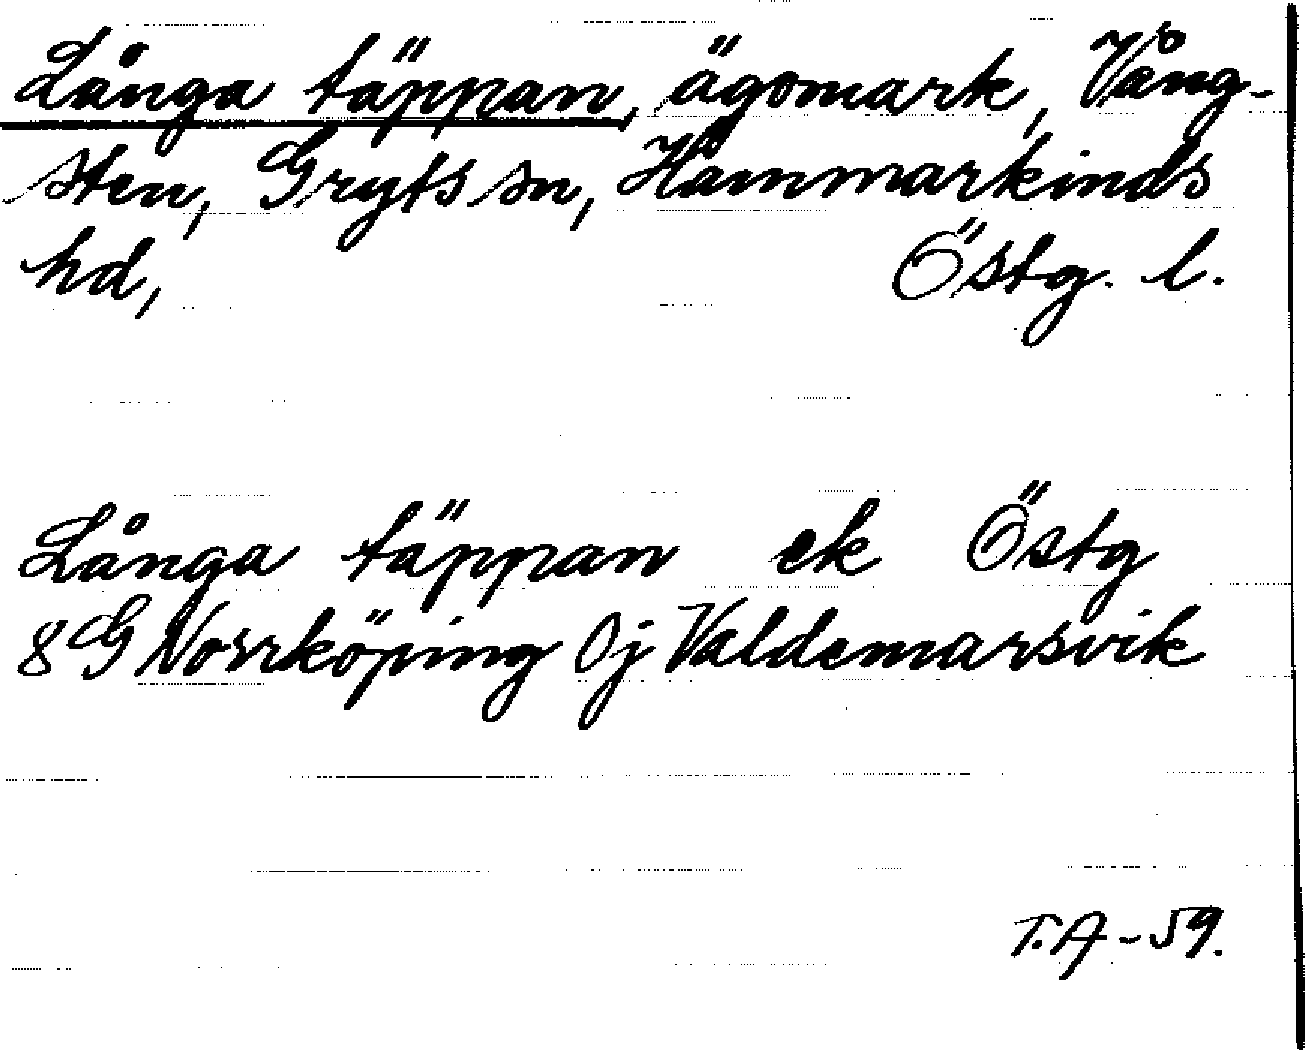 Långa täppan, ägomark, Vång-
sten, Gryts sn, Hammarkinds
hd, Östg. l.
Långa täppan ek Östg
8G Norrköping 0j Valdemarsvik
T.A-59.